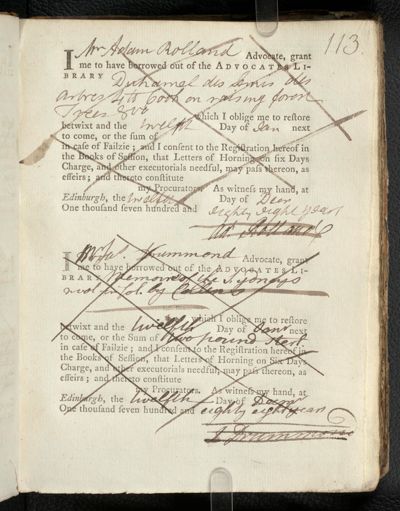 113.
I Mr Adam Rolland Advocate, grant
me to have borrowed out of the ADVOCATES LI-
BRARY Duhamel des Semis des
arbres 4to Cook on raising forest
Trees 8vo which I oblige me to restore
betwixt and the twelfth Day of Jan next
to come, or the sum of
in case of Failzie; and I consent to the Registration hereof in
the Books of Session, that Letters of Horning on six Days
Charge, and other executorials needful, may pass thereon, as
effeirs; and thereto constitute
my Procurators. As witness my hand, at
Edinburgh, the twelfth Day of Decr
One thousand seven hundred and eighty eight years
Ad. Rolland
I Drummond Advocate, grant
me to have borrowed out of the ADVOCATES LI-
BRARY Memoirs of the
by
which I oblige me to restore
betwixt and the twelfth Day of Jany next
to come, or the Sum of two pound Sterl.
in case of Failzie; and I consent to the Registration hereof in
the Books of Session, that Letters of Horning on Six Days
Charge, and other executorials needful, may pass thereon, as
effeirs; and thereto constitute
my Procurators. As witness my hand, at
Edinburgh, the twelfth Day of Decemr
One thousand seven hundred and eighty eight years
Drummond